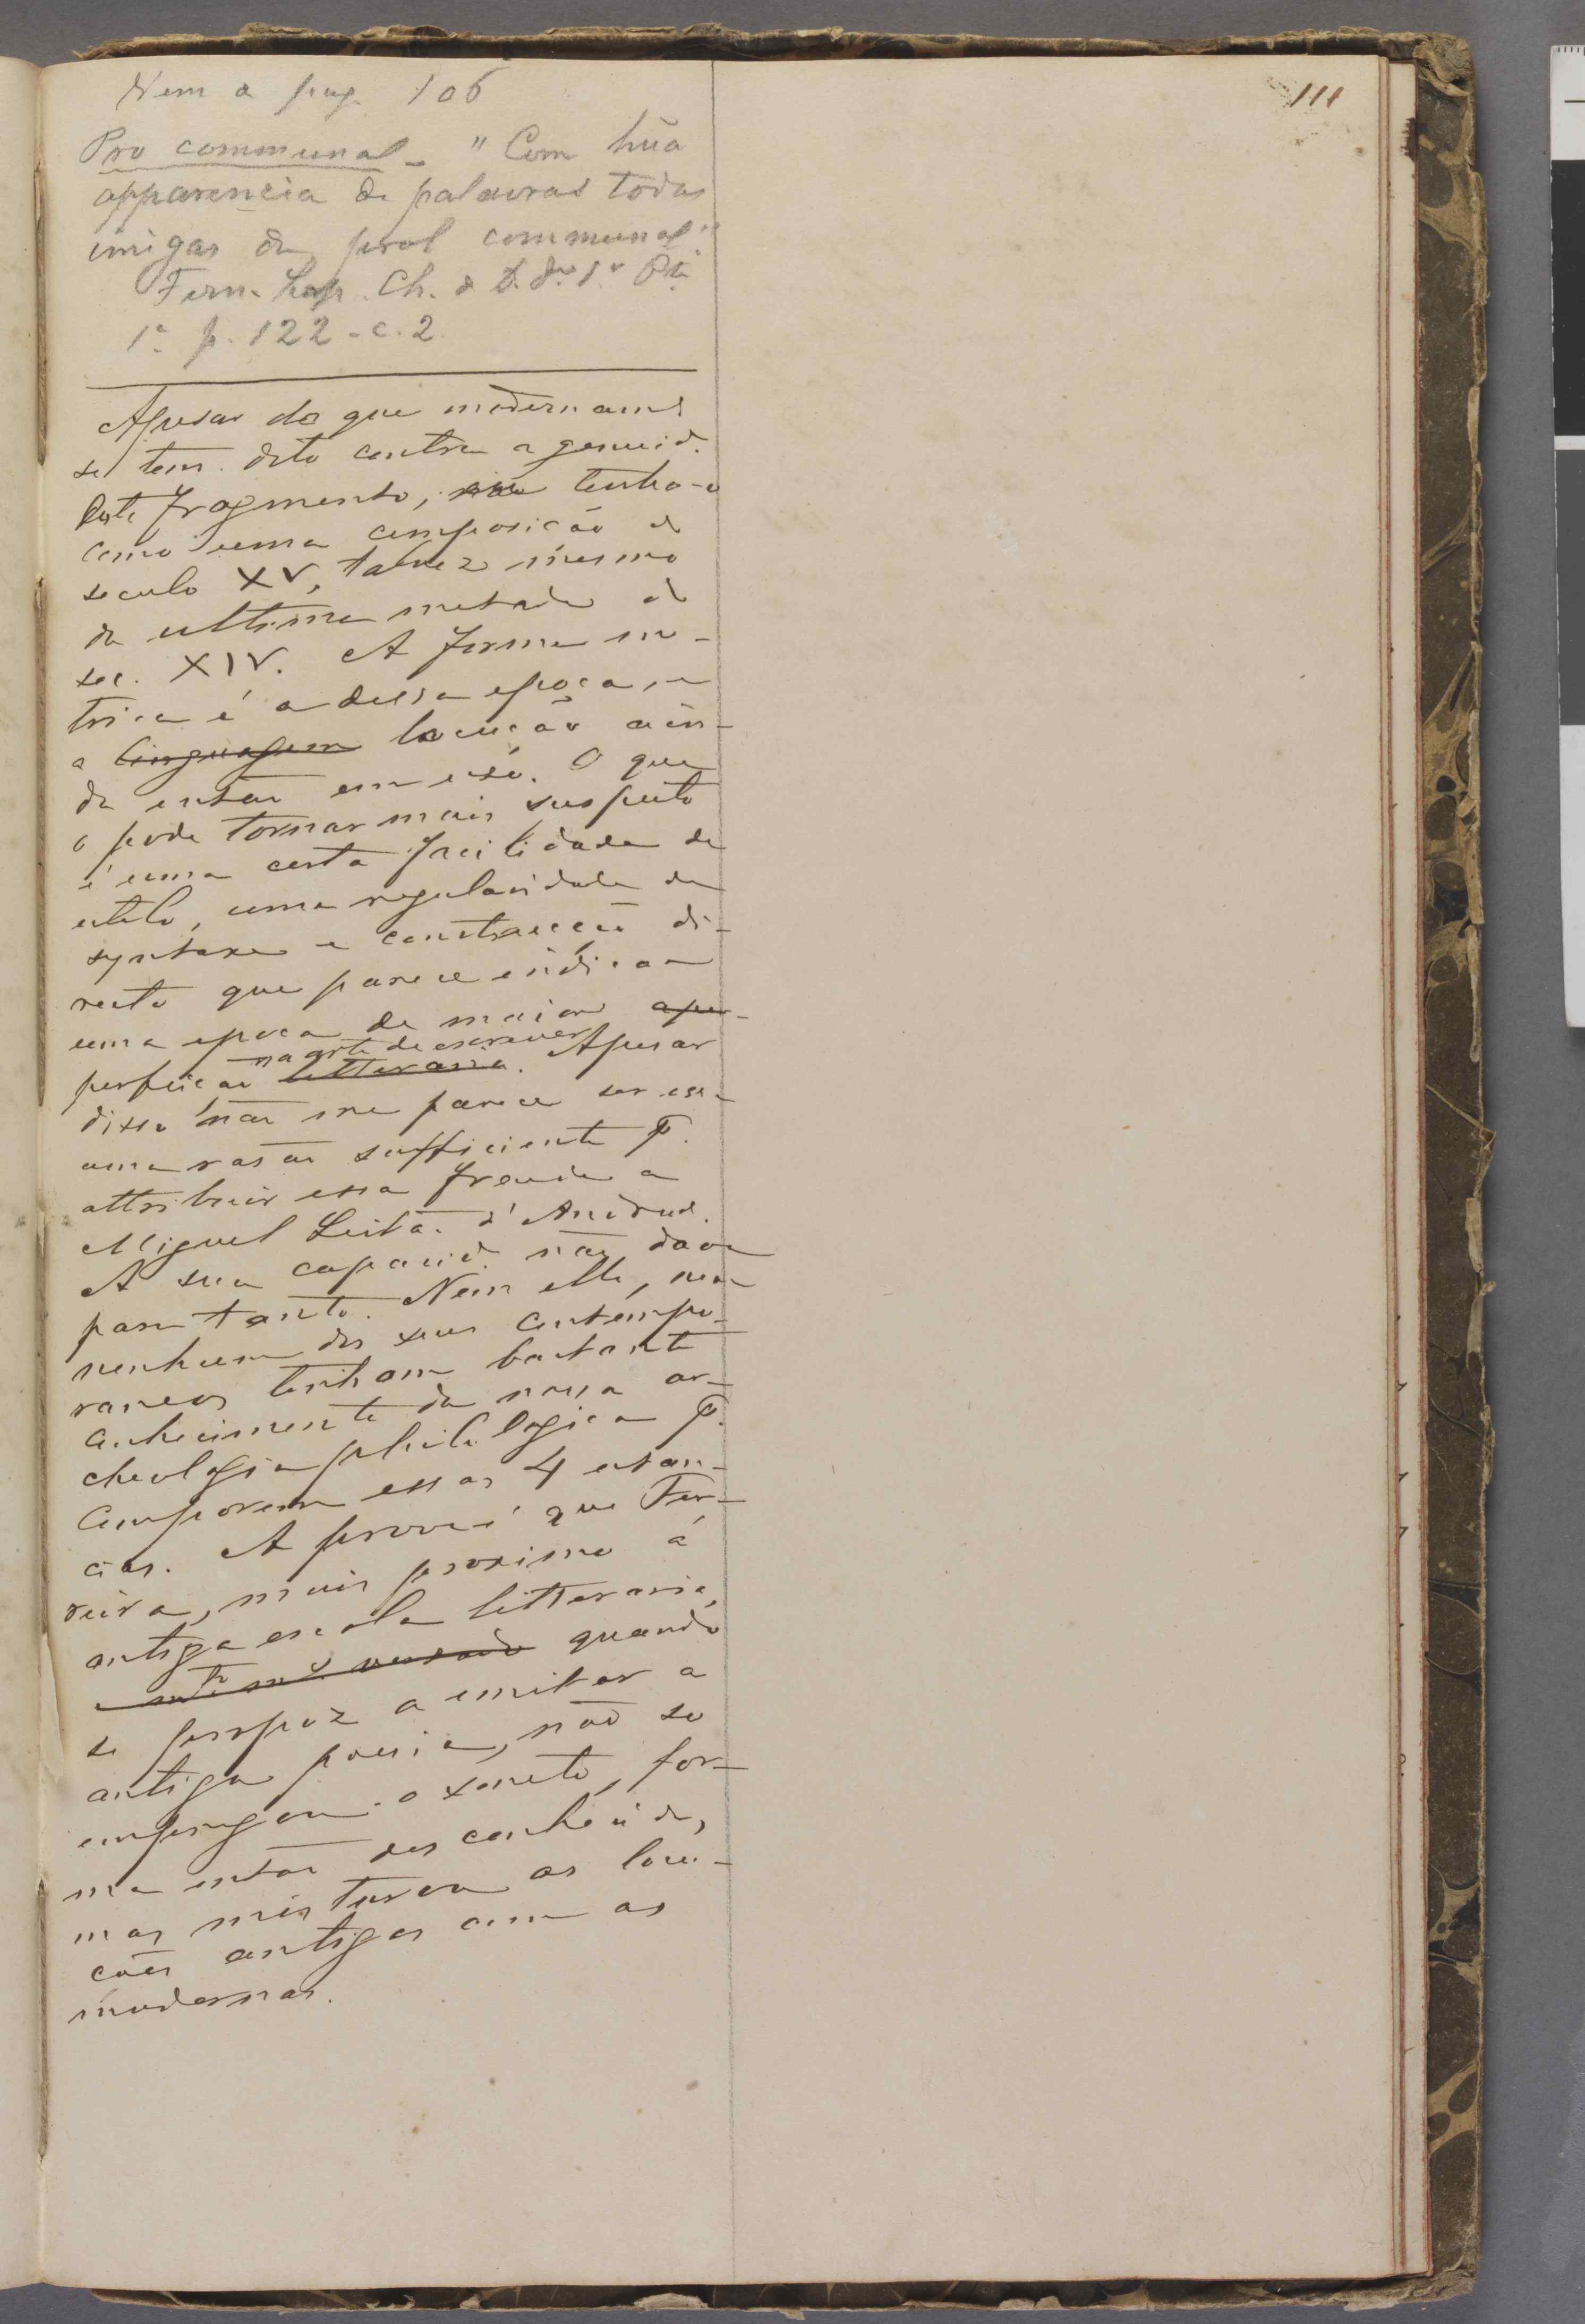 111
Vem a pag. 106
Pro communal - "Com hũa
apparencia de palavras todas
imigas do prol communal"
Fern. Lop. Ch. de D. J. 1º Pte
1ª p. 122 - c. 2
Apesar do que modernamte
se tem dito contra a genuid.
deste fragmento, tenho-o
como uma composição do
seculo XV, talvez mesmo
da ultima metade do
sec. XIV. A forma me-
trica é a dessa epoca, e
a linguagem locução ain-
da então em uso. O que
o pode tornar mais suspeito
é uma certa facilidade de
estilo, uma regularidade de
syntaxe e construcção di-
recta que parece indicar
uma epoca de maior aper-
na arte de escrever
perfeição litteraria. Apesar
disso não me parece ser essa
uma rasão sufficiente p.
attribuir essa fraude a
Miguel Leitão d'Andrad.
A sua capacid. não dava
para tanto. Nem elle, nem
nenhum dos seus contempo-
raneos tinham bastante
conhecimento da nossa ar-
cheologia philologica p.
comporem essas 4 estan-
cias. A prova é que Fer-
reira, mais proximo á
antiga escola litteraria,
quando
se propoz a imitar a
antiga poesia, não só
empregou o soneto, for-
ma então desconhecida,
mas misturou as locu-
ções antigas com as
modernas.